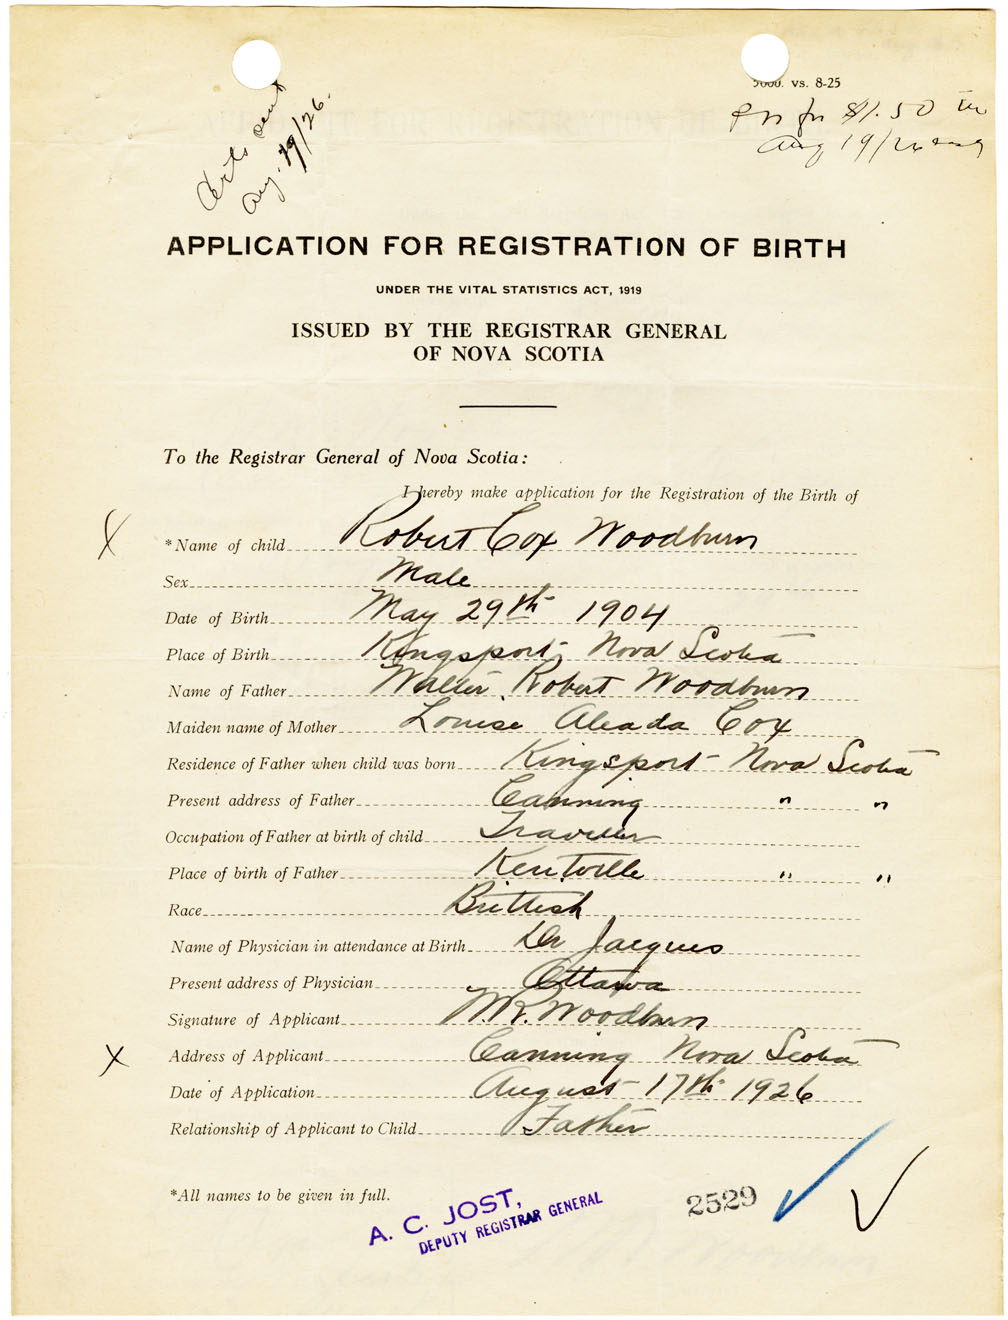 5000. vs. 8-25
Certs sent
Aug. 19/26.
$1.50
Aug 19/26
APPLICATION FOR REGISTRATION OF BIRTH
UNDER THE VITAL STATISTICS ACT, 1919
ISSUED BY THE REGISTRAR GENERAL
OF NOVA SCOTIA
To the Registrar General of Nova Scotia:
I hereby make application for the Registration of the Birth of
X *Name of child Robert Cox Woodburn
Sex Male
Date of Birth May 29th 1904
Place of Birth Kingsport Nova Scotia
Name of Father Walter Robert Woodburn
Maiden name of Mother Louise Aleada Cox
Residence of Father when child was born Kingsport Nova Scotia
Present address of Father Canning " "
Occupation of Father at birth of child Traveller
Place of birth of Father Kentville " "
Race Brittish
Name of Physician in attendance at Birth Dr Jacques
Present address of Physician Ottawa
Signature of Applicant W.R. Woodburn
X Address of Applicant Canning Nova Scotia
Date of Application August 17th 1926
Relationship of Applicant to Child Father
*All names to be given in full.
A. C. JOST,
DEPUTY REGISTRAR GENERAL
2529